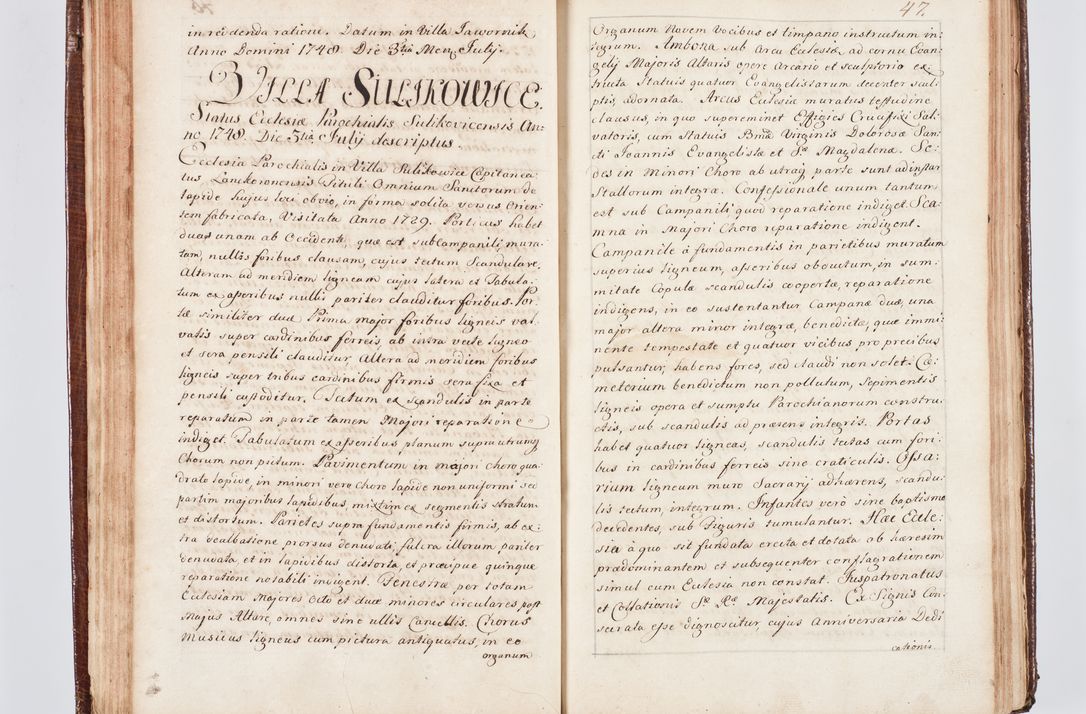 in reddenda ratione. Datum in Villa Jawornik
Anno Domini 1748. Die 3tia Mens. Julij.
VILLA SULIKOWICE.
Status Ecclesiæ Parochialis Sulikovicensis An-
no 1748. Die 5tia Julij descriptus.
Ecclesia Parochialis in Villa Sulikowice Capitanea
tus Lanckoronensis Tituli Omnium Sanctorum de
lapide hujus loci obvio, in forma solita versus Orien-
tem fabricata, Visitata Anno 1729. Porticus habet
duas unam ab Occidente, quæ est sub Campanili mura-
tam, nullis foribus clausam, cujus tectum Scandulare.
Alteram ad meridiem ligneam cujus latera et Tabula-
tum ex asseribus nulli pariter clauditur foribus. Por-
tæ similiter duæ Prima major foribus ligneis val-
vatis super cardinibus ferreis ab intra vecte ligneo
et sera pensili clauditur Altera ad meridiem foribus
ligneis super tribus cardinibus firmis sera fixa et
pensili custoditur. Tectum ex Scandulis in parte
reparatum in parte tamen Majori reparatione
indiget. Tabulatum ex asseribus planum supra utrumq
Chorum non pictum. Pavimentum in majori choro qua-
drato lapide, in minori vero choro lapide non uniformi sed
partim majoribus lapidibus, mixtim ex segmentis stratum
et distortum. Parietes supra fundamentis firmis, ab ex-
tra dealbatione prorsus denudati, fulcra illorum pariter
denudata, et in lapidibus distorta, et præcipue quinque
reparatione notabili indigent. Fenestræ per totam
Ecclesiam Majores Octo et duæ minores circulares, post
Majus Altare, omnes sine ullis Cancellis. Chorus
Musicus ligneus cum pictura antiquatus, in eo
organum
47.
Organum Novem Vocibus et timpano instructum in-
tegrum. Ambona sub Arcu Ecclesiæ, ad cornu Evan-
gelij Majoris Altaris opere Arcario et sculptorio ex-
tructa Statuis quatuor Evangelistarum decenter scul-
ptis, adornata. Arcus Ecclesiæ muratus testudine
clausus, in quo supereminet Effigies Crucifixi Sal-
vatoris, cum Statuis Bmæ Virginis Dolorosæ San-
cti Joannis Evangelistæ et Sæ Magdalenæ. Se-
des in Minori Choro ab utraq parte sunt ad instar
Stallorum integra. Confessionale unum tantum
est sub Campanili quod reparatione indiget Sca-
mna in Majori Choro reparatione indigent.
Campanile à fundamentis in parietibus muratum
superius ligneum, asseribus obductum, in sum-
mitate Copulæ scandulis coopertæ, reparatione
indigens, in eo sustentantur Campanæ duæ, una
major altera minor integræ, benedictæ, quæ immi-
nente tempestate et quatuor vicibus pro precibus
pulsantur, habens fores, sed claudi non solet. Cæ-
meterium benedictum non pollutum, Sepimentis
ligneis opera et sumptu Parochianorum constru-
ctis, sub scandulis ad præsens integris. Portas
habet quatuor ligneas, scandulis tectas cum fori-
bus in cardinibus ferreis sine craticulis. Ossa-
rium ligneum muro Sacrarij adhærens, scandu-
lis tectum, integrum. Infantes verò sine baptismo
decedentes, sub Figuris tumulantur. Hæc Eccle-
sia à quo sit fundata erecta et dotata ob hæresim
prædominantem et subsequenter conflagrationem
simul cum Ecclesia non constat. Juspatronatus
et Collationis Sæ Ræ Majestatis. Ex Signis Con-
secrata esse dignoscitur, cujus Anniversaria Dedi
cationis